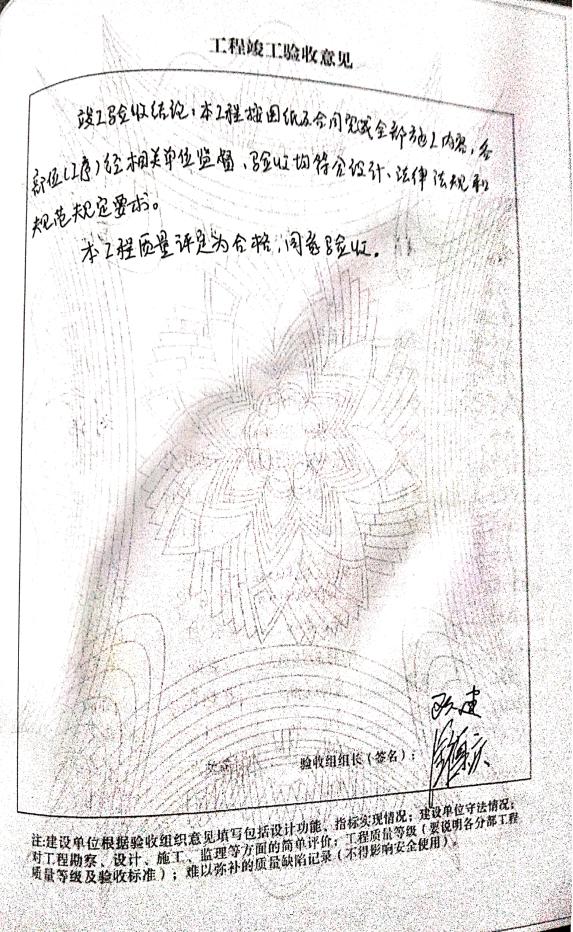 工程竣工验收意见
竣工验收结论：本工程按图纸及合同完成全部施工内容，各
部位（工序）经相关单位监督、验收均符合设计、法律法规和
规范规定要求。
本工程质量评定为合格，同意验收。
验收组组长（签名）：
注:建设单位根据验收组织意见填写包括设计功能、指标实现情况；建设单位守法情况；
对工程勘察、设计、施工、监理等方面的简单评价；工程质量等级（要说明各分部工程
质量等级及验收标准）；难以弥补的质量缺陷记录（不得影响安全使用）。